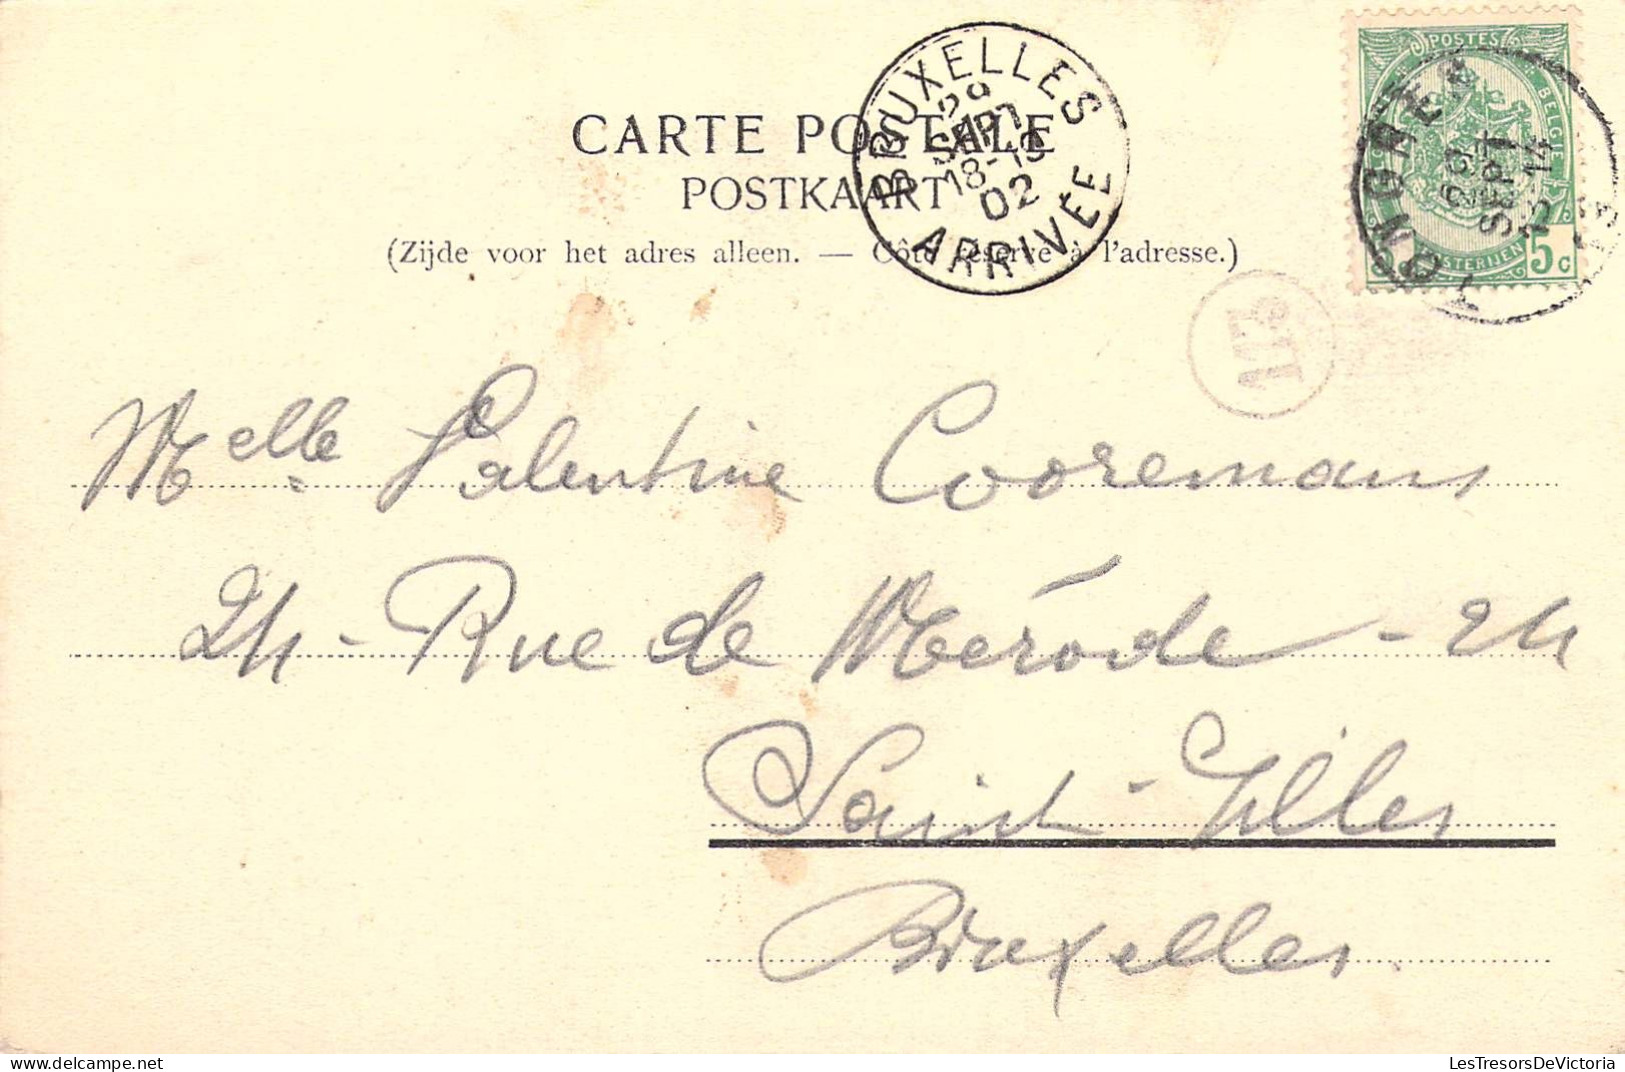 CARTE POSTALE
POSTKAART
(Zijde voor het adres alleen. — Côté réservé à l'adresse.)
BRUXELLES
29
SEPT
18-19
02
ARRIVÉE
POSTES
BELGIE
5c
TONGRES
29
SEPT
Melle Valentine Cooremans
24 - Rue de Mérode - 24
Saint-Gilles
Bruxelles.
LesTresorsDeVictoria